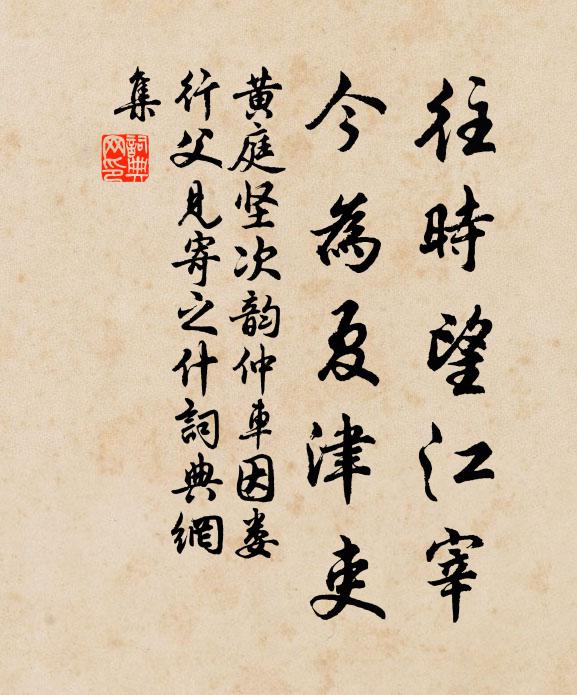 往時望江宰
今為夏津吏
黄庭坚次韵仲車因娄
行父見寄之什詞典網
集
詞典網印